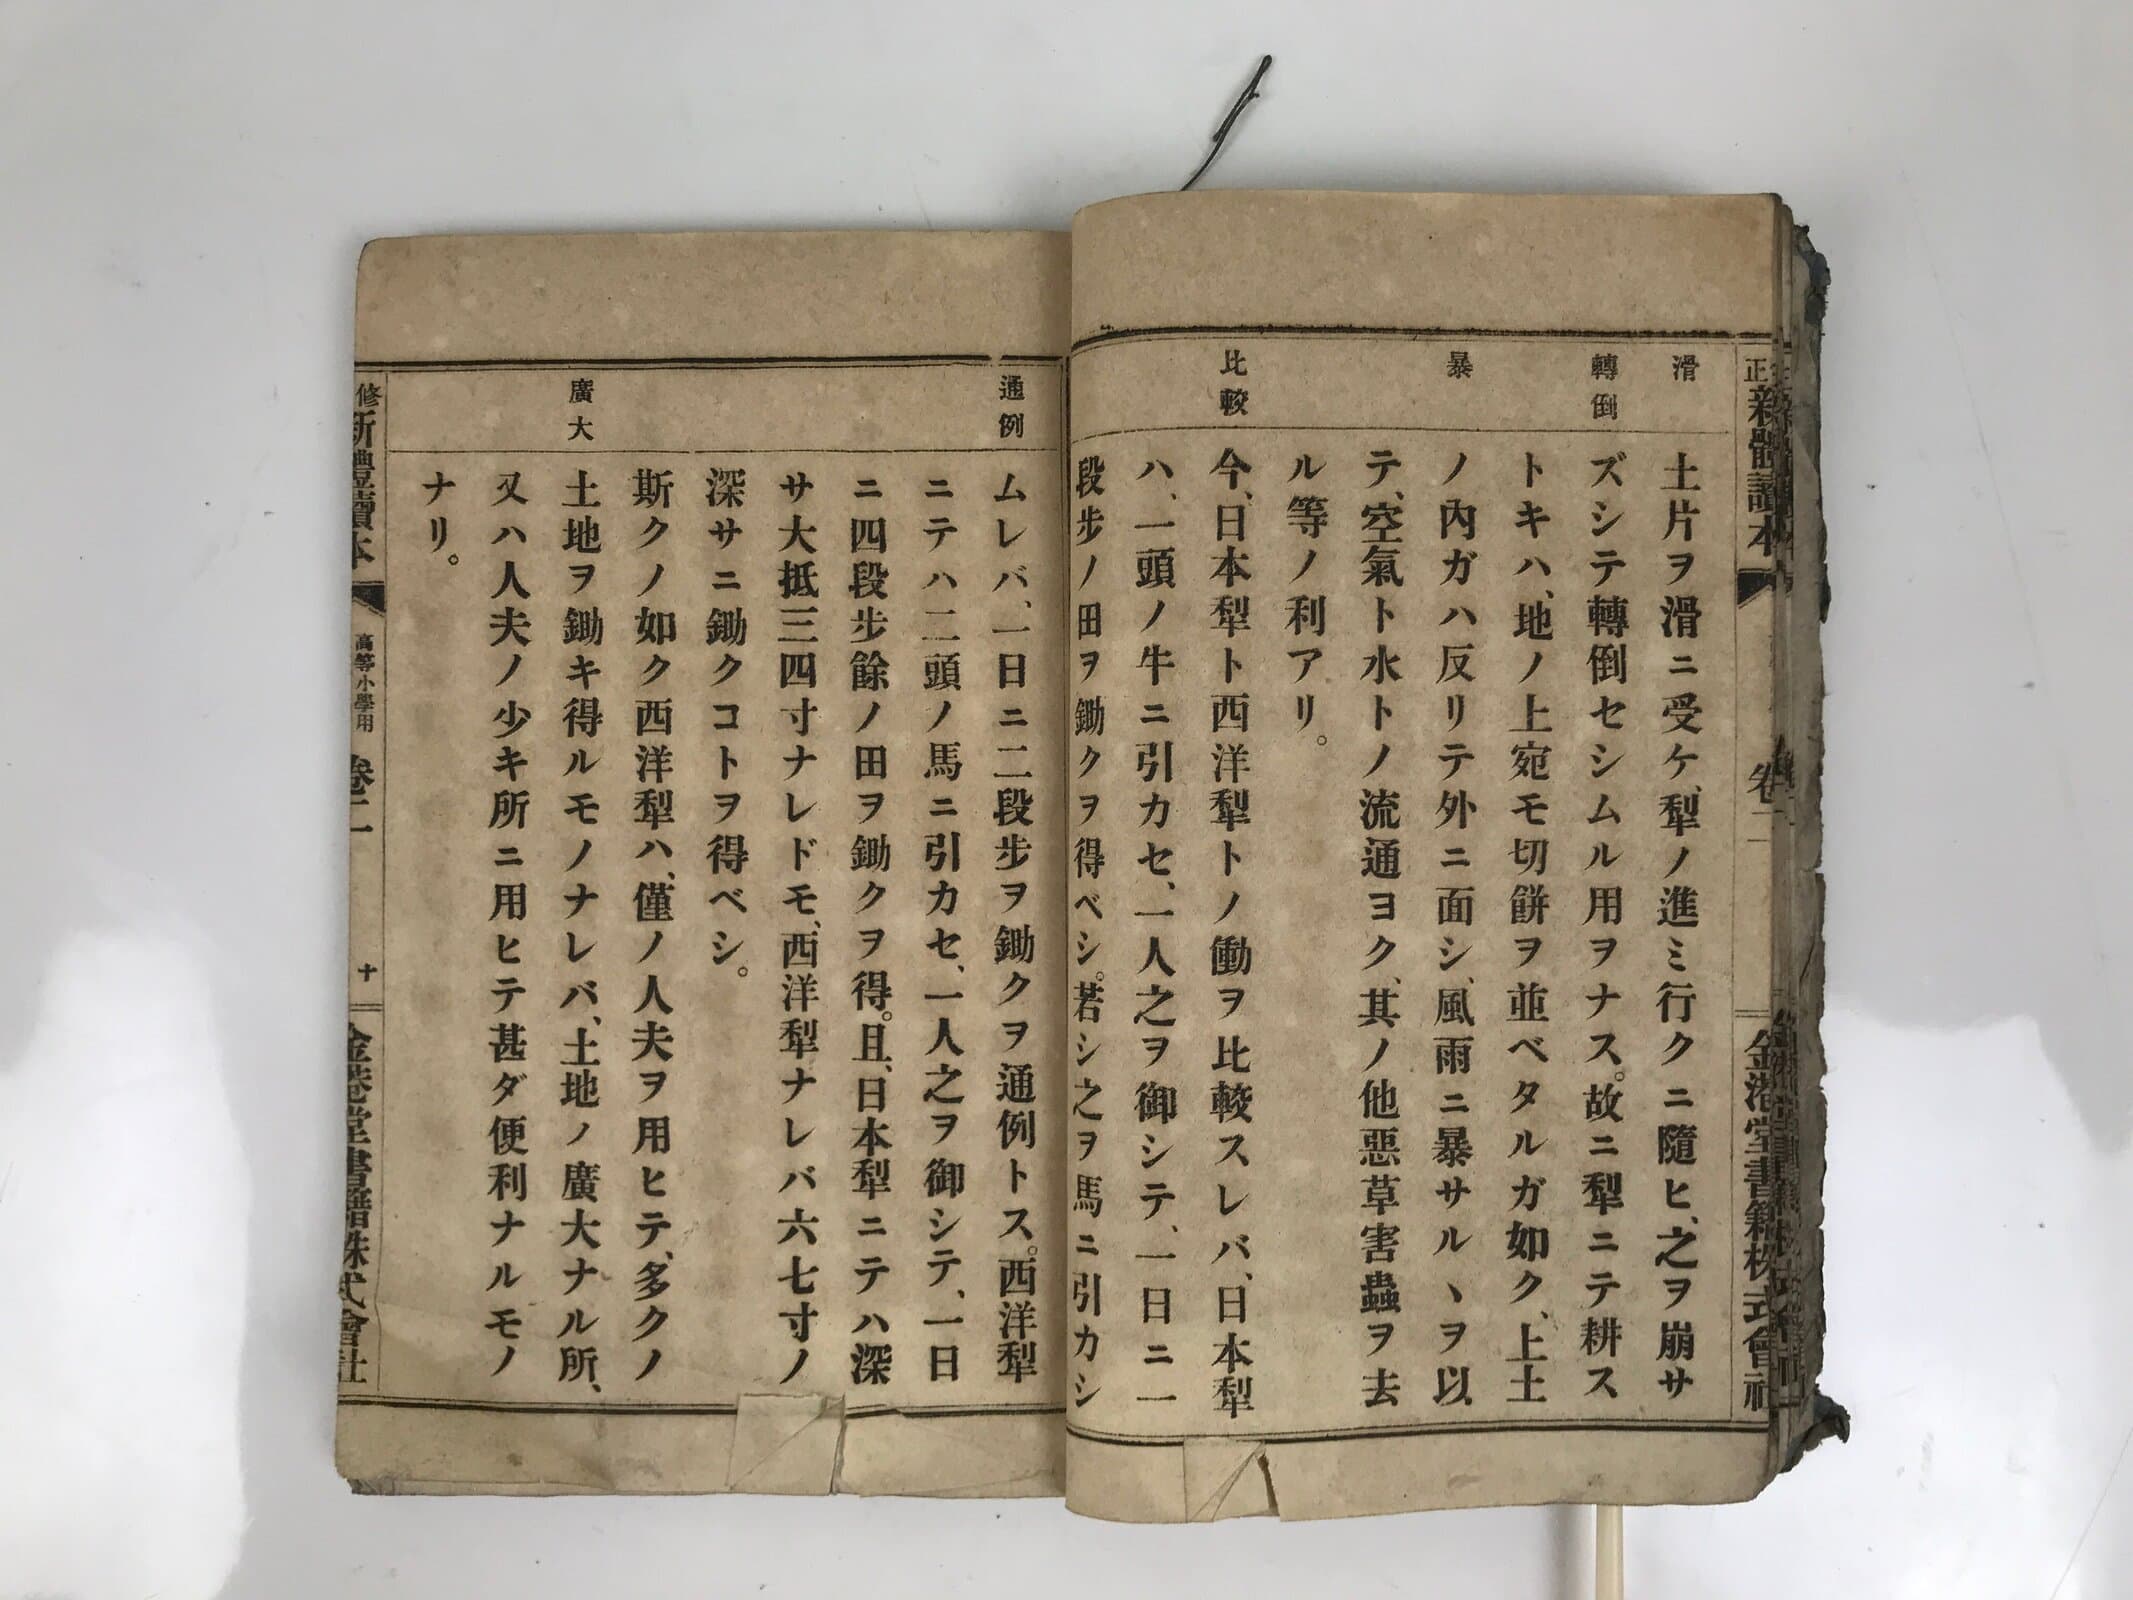 滑
轉倒
暴
比較
土片ヲ滑ニ受ケ、犁ノ進ミ行クニ隨ヒ、之ヲ崩サ
ズシテ轉倒セシムル用ヲナス。故ニ犁ニテ耕ス
トキハ、地ノ上宛モ切餅ヲ並ベタルガ如ク、上土
ノ內ガハ反リテ外ニ面シ、風雨ニ暴サルヽヲ以
テ、空氣ト水トノ流通ヨク、其ノ他惡草害蟲ヲ去
ル等ノ利アリ。
今、日本犁ト西洋犁トノ働ヲ比較スレバ、日本犁
ハ、一頭ノ牛ニ引カセ、一人之ヲ御シテ、一日ニ一
段步ノ田ヲ鋤クヲ得ベシ。若シ之ヲ馬ニ引カシ
正新體讀本
卷二
金港堂書籍株式會社
通例
廣大
ムレバ、一日ニ二段步ヲ鋤クヲ通例トス。西洋犁
ニテハ二頭ノ馬ニ引カセ、一人之ヲ御シテ、一日
ニ四段步餘ノ田ヲ鋤クヲ得。且、日本犁ニテハ深
サ大抵三四寸ナレドモ、西洋犁ナレバ六七寸ノ
深サニ鋤クコトヲ得ベシ。
斯クノ如ク西洋犁ハ、僅ノ人夫ヲ用ヒテ、多クノ
土地ヲ鋤キ得ルモノナレバ、土地ノ廣大ナル所、
又ハ人夫ノ少キ所ニ用ヒテ甚ダ便利ナルモノ
ナリ。
修新體讀本
高等小學用
卷二
十
金港堂書籍株式會社